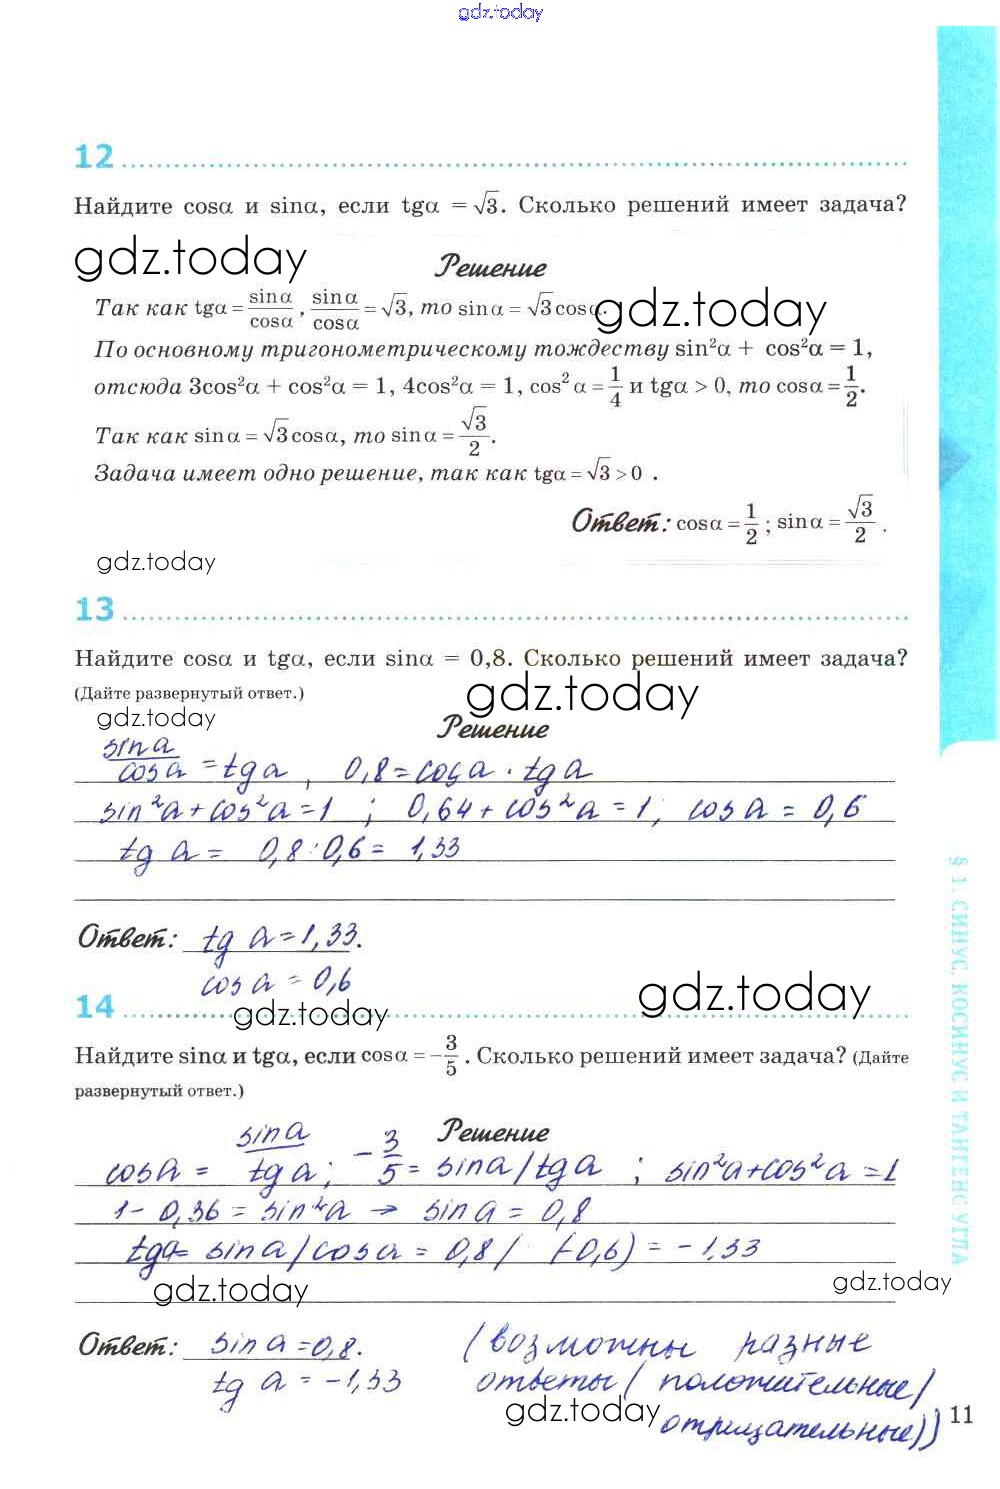 gdz.today
12
Найдите cosα и sinα, если tgα = √3. Сколько решений имеет задача?
gdz.today
Решение
Так как tgα = sinα/cosα, sinα/cosα = √3, то sinα = √3cosα.
gdz.today
По основному тригонометрическому тождеству sin²α + cos²α = 1,
отсюда 3cos²α + cos²α = 1, 4cos²α = 1, cos²α = 1/4 и tgα > 0, то cosα = 1/2.
Так как sinα = √3cosα, то sinα = √3/2.
Задача имеет одно решение, так как tgα = √3 > 0 .
Ответ: cosα = 1/2 ; sinα = √3/2 .
gdz.today
13
Найдите cosα и tgα, если sinα = 0,8. Сколько решений имеет задача?
(Дайте развернутый ответ.)
gdz.today
gdz.today
Решение
sin a/cos a = tg a , 0,8 = cos a · tg a
sin²a + cos²a = 1 ; 0,64 + cos²a = 1, cos a = 0,6
tg a = 0,8 : 0,6 = 1,33
Ответ: tg a = 1,33.
cos a = 0,6
gdz.today
14
gdz.today
Найдите sinα и tgα, если cosα = -3/5 . Сколько решений имеет задача? (Дайте
развернутый ответ.)
Решение
cos a = sin a/tg a ; - 3/5 = sin a / tg a ; sin²a + cos²a = 1
1 - 0,36 = sin²a → sin a = 0,8
tg a = sin a / cos a = 0,8 / (-0,6) = -1,33
gdz.today
gdz.today
Ответ: sin a = 0,8.
tg a = -1,33
(возможны разные
ответы (положительные/
отрицательные))
gdz.today
11
§ 1. СИНУС, КОСИНУС И ТАНГЕНС УГЛА